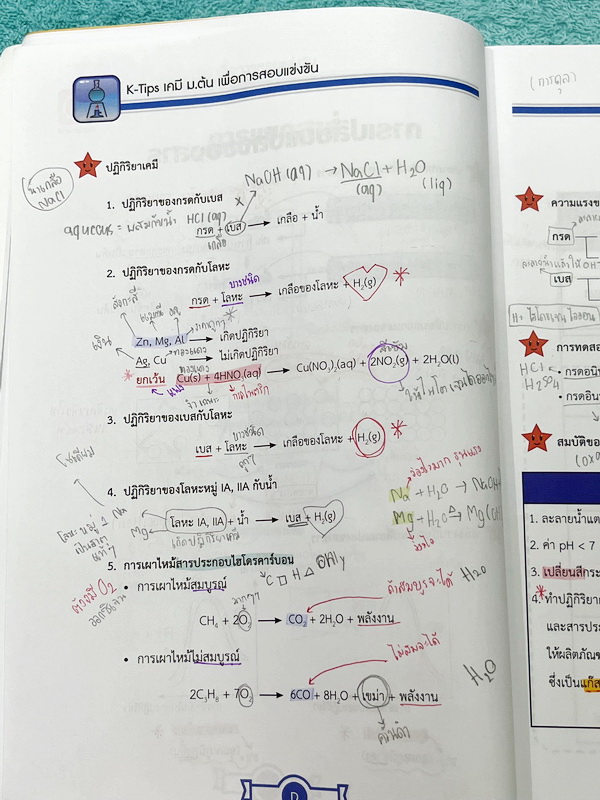 K-Tips เคมี ม.ต้น เพื่อการสอบแข่งขัน
(การดุล)
ปฏิกิริยาเคมี
น้ำเกลือ NaCl
NaOH (aq) → NaCl + H₂O
(aq) (liq)
1. ปฏิกิริยาของกรดกับเบส
aqueous = ผสมกับน้ำ HCl (aq)
กรด + เบส → เกลือ + น้ำ
เกลือ
2. ปฏิกิริยาของกรดกับโลหะ
บางชนิด
กรด + โลหะ → เกลือของโลหะ + H₂(g) *
สังกะสี
เงิน
Zn, Mg, Al → เกิดปฏิกิริยา
Ag, Cu → ไม่เกิดปฏิกิริยา
ทองแดง
* ยกเว้น Cu(s) + 4HNO₃(aq) → Cu(NO₃)₂(aq) + 2NO₂(g) + 2H₂O(l)
3. ปฏิกิริยาของเบสกับโลหะ
บางชนิด
เบส + โลหะ → เกลือของโลหะ + H₂(g) *
โซเดียม
4. ปฏิกิริยาของโลหะหมู่ IA, IIA กับน้ำ
Na + H₂O → NaOH
Mg + H₂O → Mg(OH
Na
Mg
โลหะ IA, IIA + น้ำ → เบส + H₂(g)
5. การเผาไหม้สารประกอบไฮโดรคาร์บอน
ต้องมี O₂
• การเผาไหม้สมบูรณ์
H₂O
มากๆ
CH₄ + 2O₂ → CO₂ + 2H₂O + พลังงาน
• การเผาไหม้ไม่สมบูรณ์
H₂O
2C₃H₈ + 7O₂ → 6CO + 8H₂O + เขม่า + พลังงาน
ความแรงข
กรด
เบส
การทดสอ
HCl
H₂SO₄
• กรดอนิน
• กรดอิน
สมบัติขอ
1. ละลายน้ำแต
2. ค่า pH < 7
3. เปลี่ยนสีกระ
4. ทำปฏิกิริยาก
และสารประ
ให้ผลิตภัณฑ
ซึ่งเป็นแก๊ส